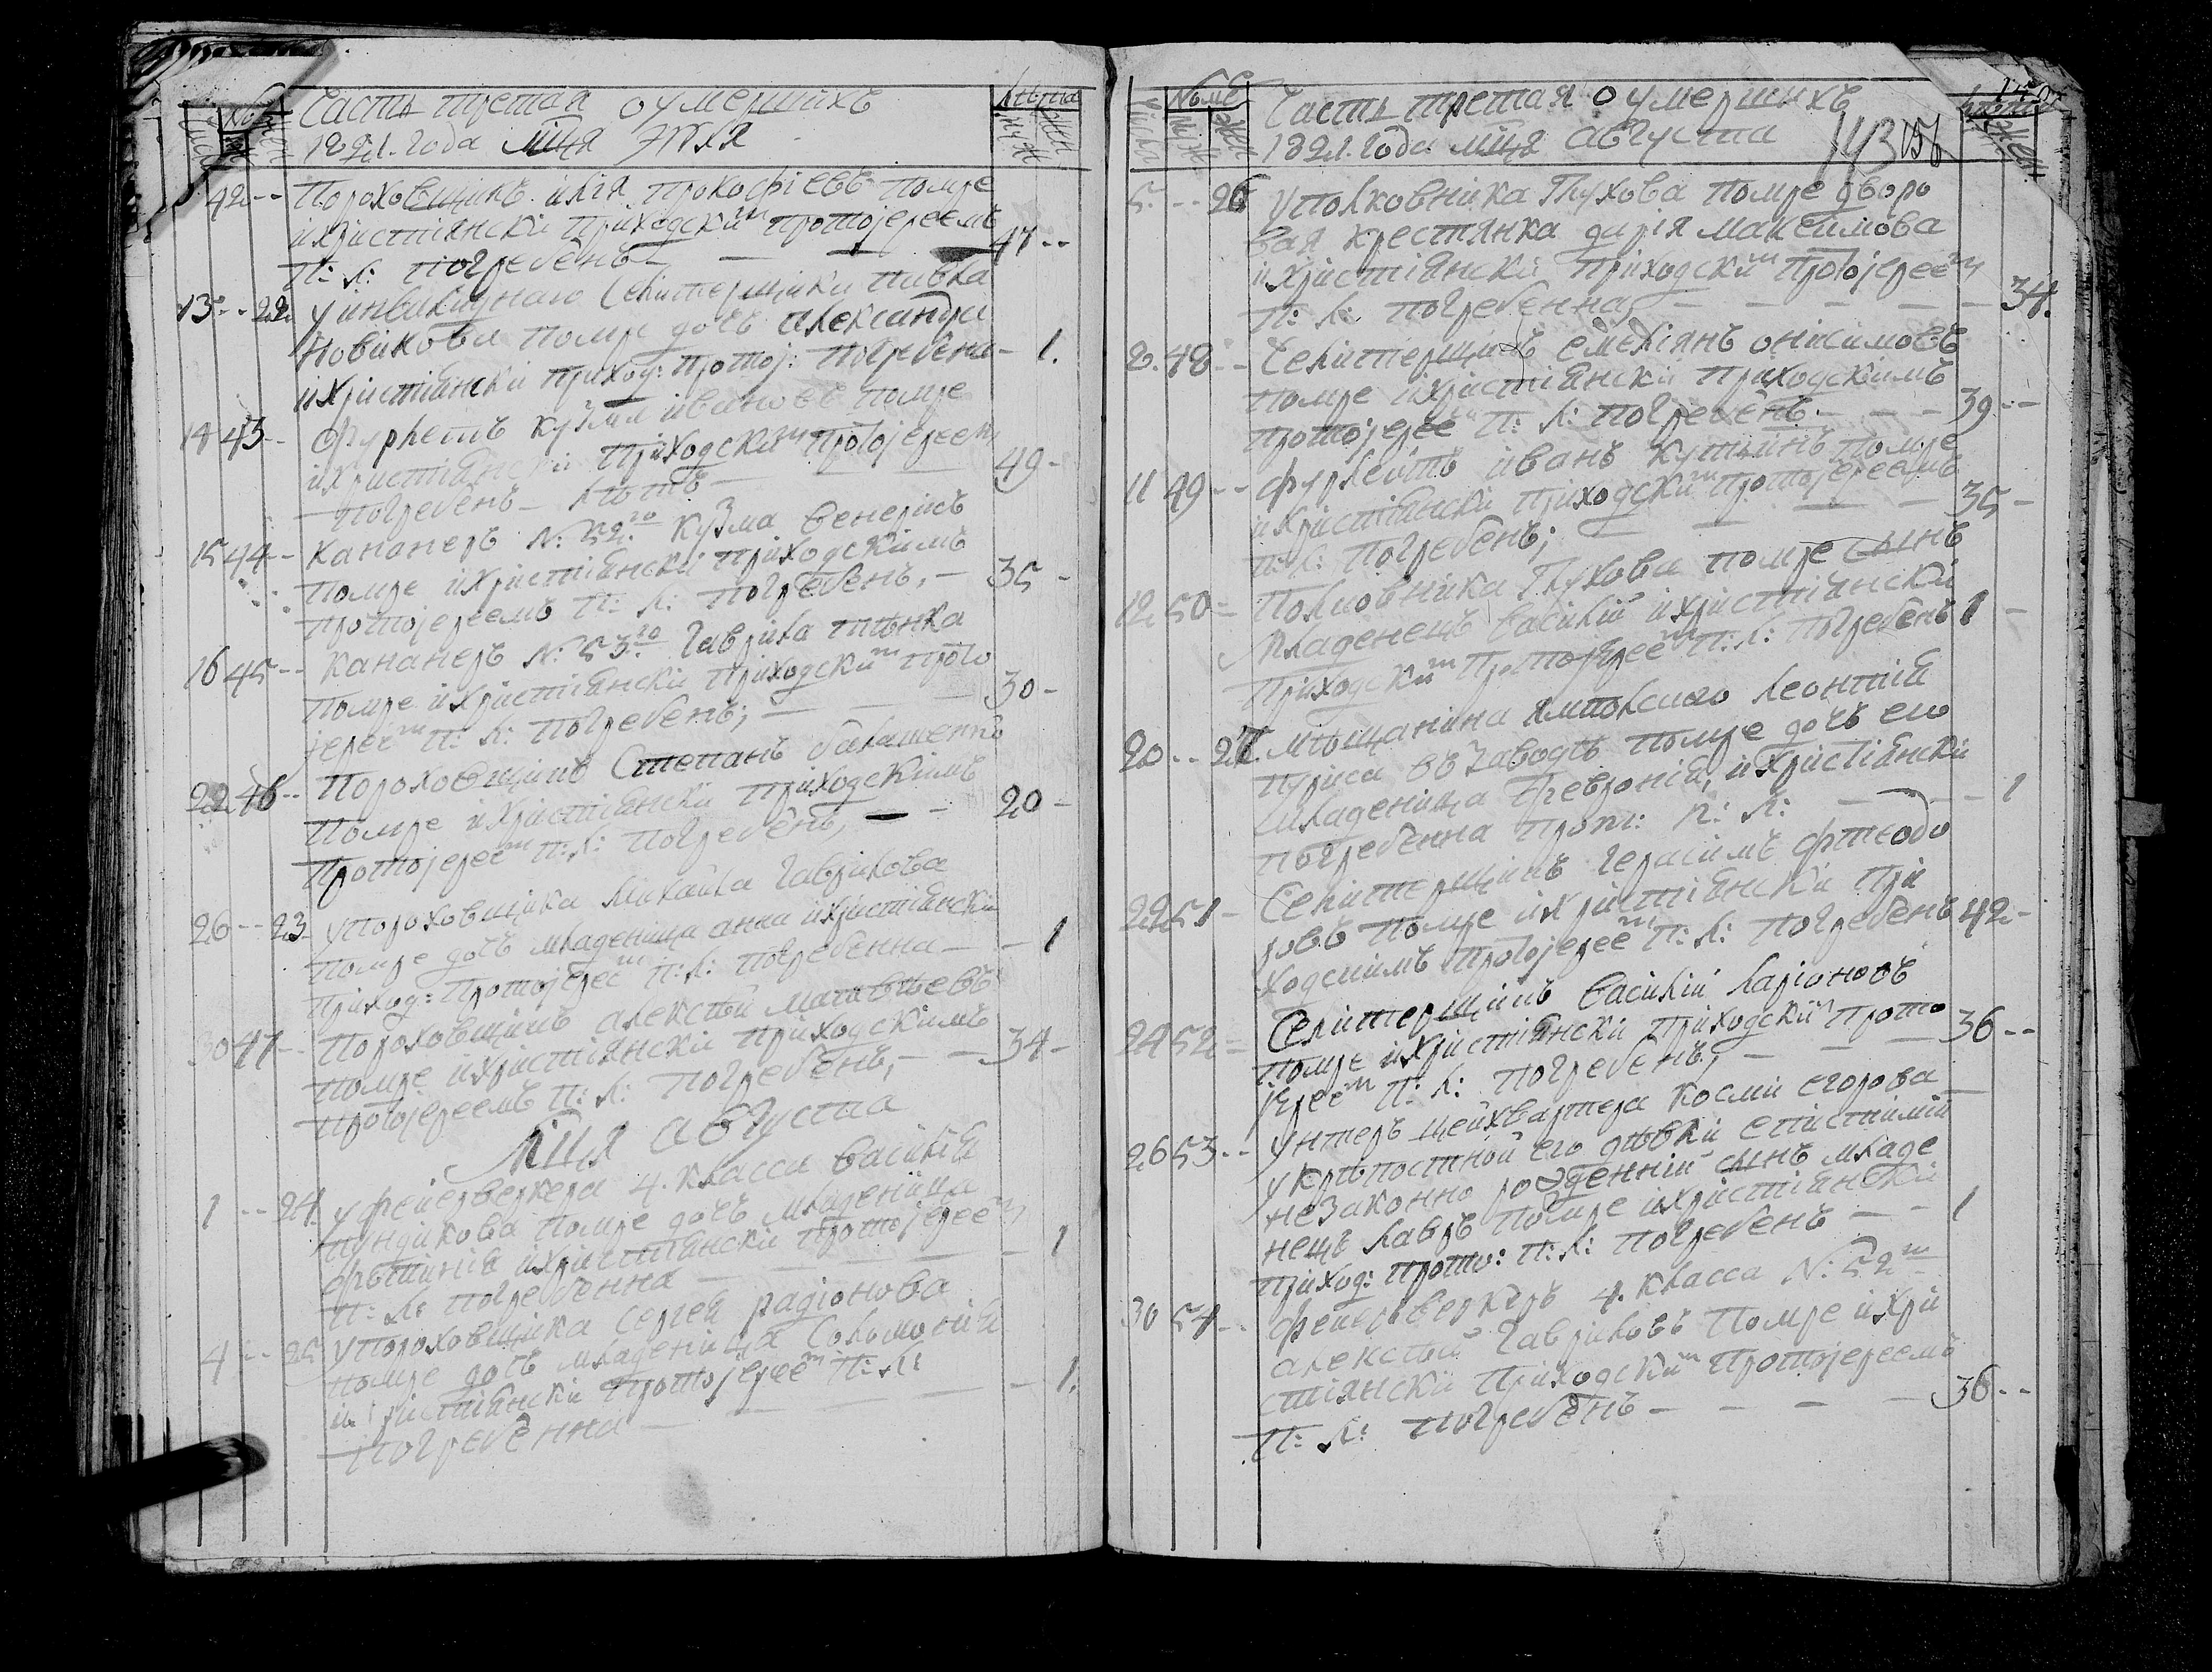 Часть третая о умершихъ
1821. года мця июля
42 -- Пороховщикъ илія прокофіевъ помре
ихристіянски приходскимъ протоіереемъ
П: Л: погребенъ — — — 47 --
13 -- 22 у инвалиднаго селитерщика павла
Новикова помре дочь александра
ихристіянски приход: протоі: погребена — 1.
14 43 -- фурлетъ кузма ивановъ помре
ихристіянски приходским протоіереем
погребенъ — 49 -
15 44 - Кананеръ N: 52го Кузма
помре ихристіянски приходскимъ
протоіереемъ П: Л: погребенъ, — 35 -
16 45 -- Кананеръ N: 53го Гаврила
помре ихристіянски приходским прото
іерем П: Л: погребенъ; — 30 -
22 46 -- Пороховщикъ Степанъ
помре ихристіянски приходскимъ
протоіерем П: Л: погребенъ, — — 20 -
26 -- 23 упороховщика михаила Гаврилова
помре дочь младеница анна ихристіянски
приход: протоіерем П: Л: погребенна — - 1
30 47 -- Пороховщикъ алексѣй матвѣевъ
помре ихристіянски приходскимъ
протоіереемъ П: Л: погребенъ, — — 34 -
Мця августа
1 -- 24 уфеиерверкера 4. класса василия
помре дочь младеница
фотиния ихристіянски протоіереем
П: Л: погребенна — - 1
4 -- 25 упороховщика сергея радіонова
помре дочь младеница Соломония
ихристіянски протоіерем П: Л:
погребенна — - 1.
Часть третая о умершихъ
1821. года мця августа
143 156
5 -- 26 уполковника Глухова помре дворо
вая крестянка дарія максимова
ихристіянски приходским протоіереем
П: Л: погребенна — — — — 34.
8. 48 -- Селитерщикъ емеліянъ онисимовъ
помре ихристіянски приходскимъ
протоіерем П: Л: погребенъ. — — 39 --
11 49 -- фурлейтъ иванъ помре
ихристіянски приходским протоіереемъ
П: Л: погребенъ; — — — 35 -
12 50 = Полковника Глухова помре сынъ
младенецъ василій ихристіянски
приходским протоіерем П: Л: погребенъ 1 -
20 -- 27. мѣщанина ямполскаго леонтия
в заводѣ помре дочь его
младеница феврония, ихристіянски
погребенна прот: П: Л: — — - 1
22 51 - Селитерщикъ герасимъ фтеодо
ровъ помре ихристіянски при
ходскимъ протоіерем П: Л: погребенъ 42 -
24 52 = Селитерщикъ василій ларіоновъ
помре ихристіянски приходским прото
іерем П: Л: погребенъ, — — — 36 --
26 53 -- унтеръ цейхвартера косми егорова
укрѣпостной его дѣвки епистимии
незаконно рожденній сынъ младе
нецъ лавръ помре ихристіянски
приход: прото: П: Л: погребенъ — — 1
30 54 -- феиерверкеръ 4. класса N: 52го
алексѣй Гавриловъ помре ихри
стіянски приходским протоіереемъ
П: Л: погребенъ — — — — 36 --